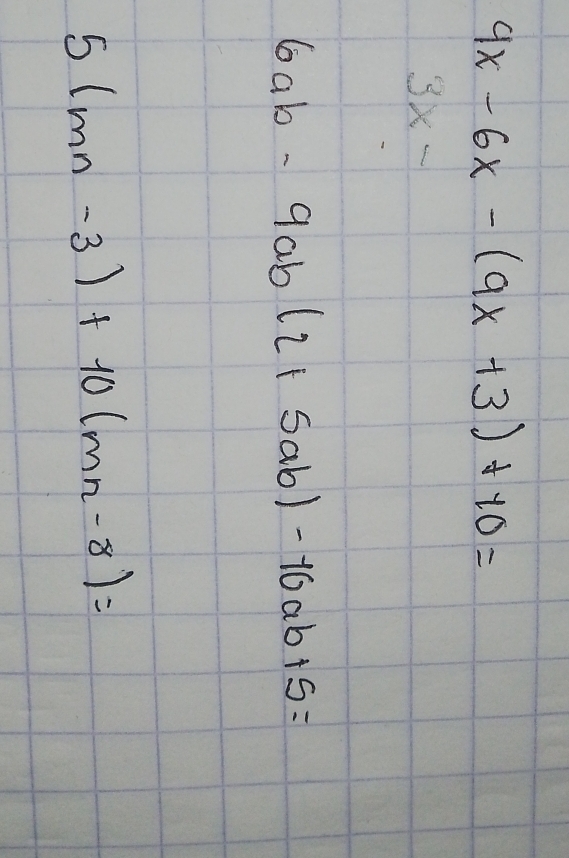 9x - 6x - (9x + 3) + 10 =
3x -
6ab - 9ab (2 + 5ab) - 16ab + 5 =
5 (mn - 3) + 10 (mn - 8) =